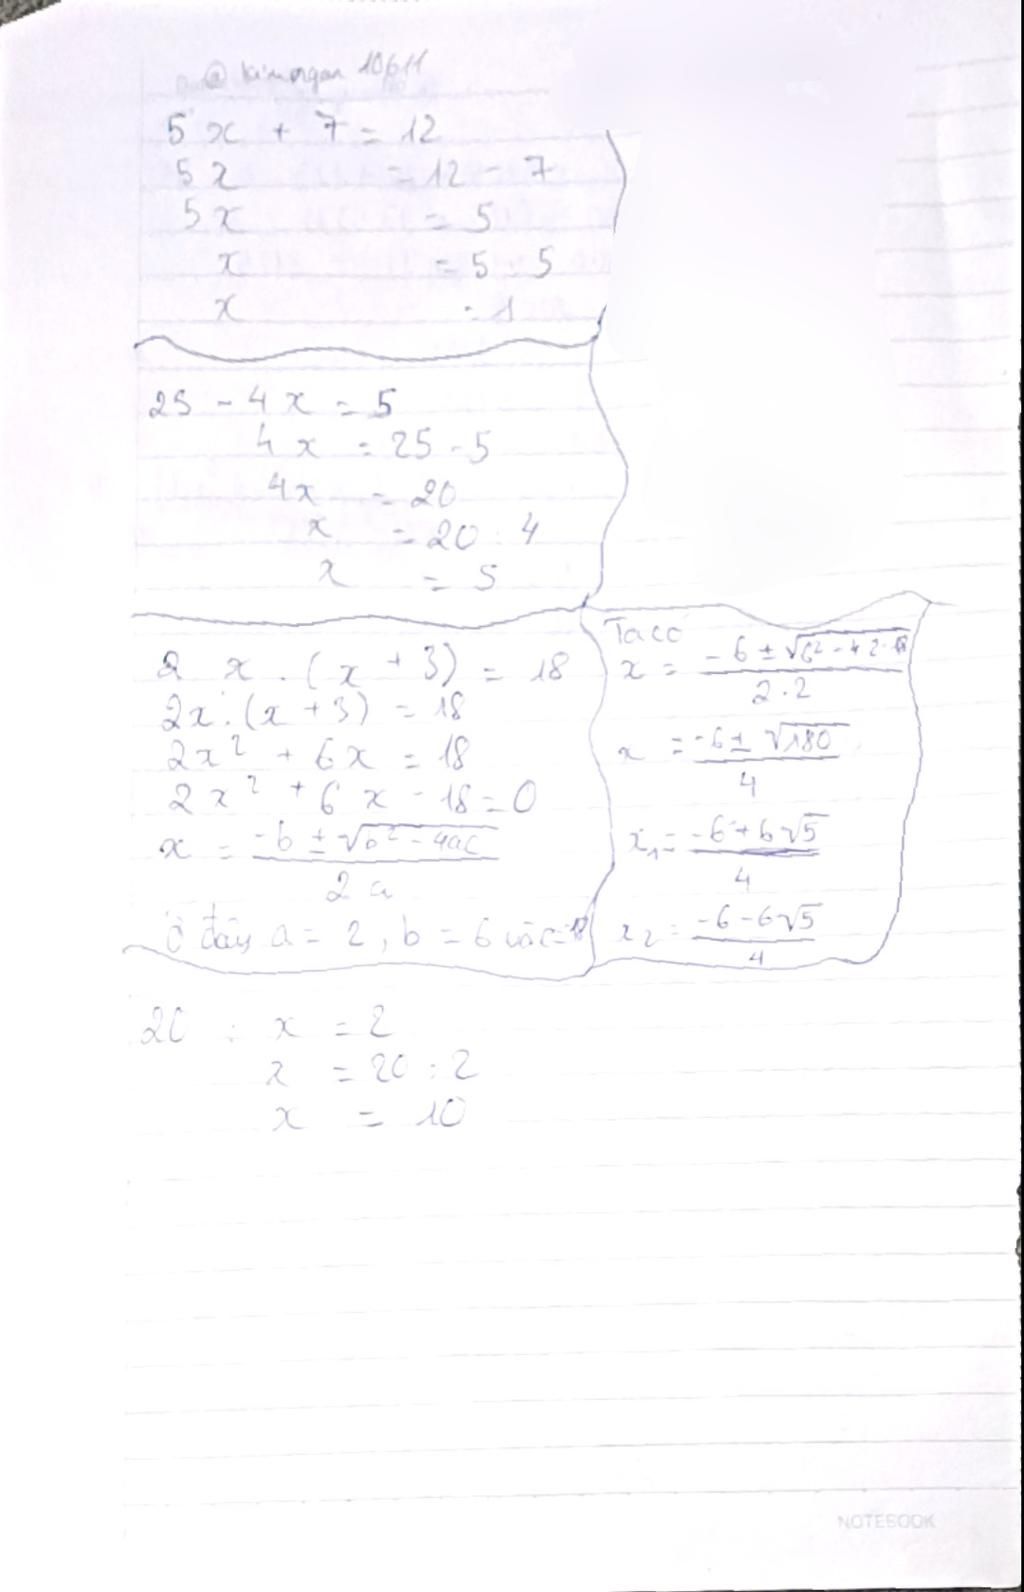 10611
5x + 7 = 12
5x = 12 - 7
5x = 5
x = 5 : 5
x = 1
25 - 4x = 5
4x = 25 - 5
4x = 20
x = 20 : 4
x = 5
2 x . (x + 3) = 18
2x . (x + 3) = 18
2x² + 6x = 18
2x² + 6x - 18 = 0
x = -b ± √b² - 4ac / 2a
Ở đây a = 2, b = 6 và c = -18
Ta có
x = -6 ± √6² - 4.2.-18 / 2.2
x = -6 ± √180 / 4
x₁ = -6 + 6√5 / 4
x₂ = -6 - 6√5 / 4
20 : x = 2
x = 20 : 2
x = 10
NOTEBOOK